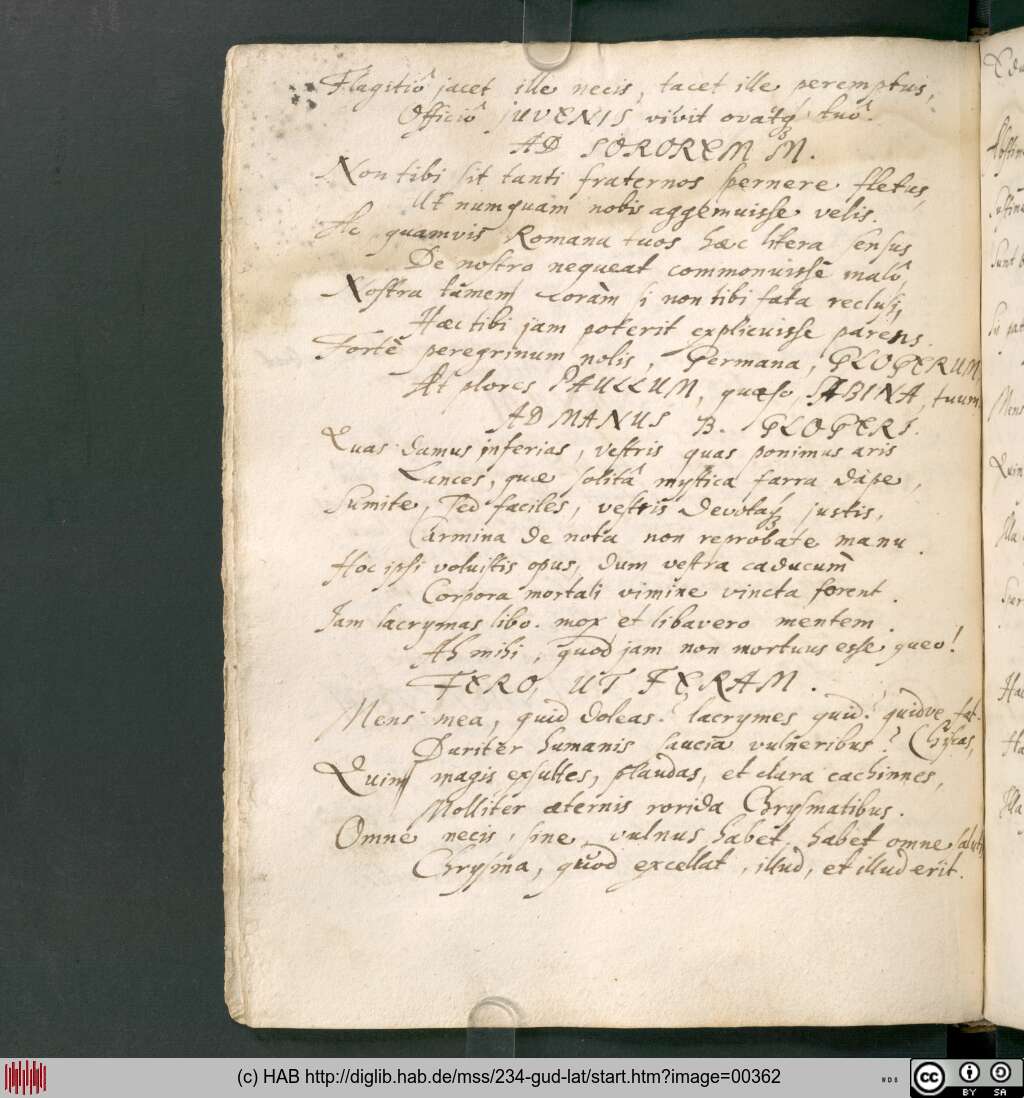 Flagitiô jacet ille necis, tacet ille peremptus,
Officiô JUVENIS vivit ovatq; tuô.
AD SOROREM M.
Non tibi sit tanti fraternos spernere fletus,
Ut numquam nobis aggemuisse velis.
Ac quamvis Romana tuos hæc litera sensus
De nostro nequeat commonuisse malô,
Nostra tamen coràm si non tibi fata reclusi,
Hæc tibi jam poterit explicuisse parens.
Fortè peregrinum nolis, Germana, GLOGERUM,
At plores PAULLUM, quæso, SABINA, tuum.
AD MANUS B. GLOGERI.
Quas damus inferias, vestris quas ponimus aris
Lances, quæ solitâ mystica farra dape,
Sumite, sed faciles, vestris devotaq; justis,
Carmina de notâ non reprobate manu.
Hoc ipsi voluistis opus, dum vestra caducum
Corpora mortali vimine vincta forent.
Jam lacrymas libo. mox et libavero mentem.
Ah mihi, quod jam non mortuus esse queo!
FERO, UT FERAM.
Mens mea, quid doleas? lacrymes quid? quidve
Pariter humanis saucia vulneribus?
Quin magis exsultes, plaudas, et clara cachinnes,
Molliter æternis rorida Chrysmatibus.
Omne necis, sine, vulnus habet, habet omne
Chrysma, quod excellat, illud, et illud erit.
(c) HAB http://diglib.hab.de/mss/234-gud-lat/start.htm?image=00362
cc BY SA